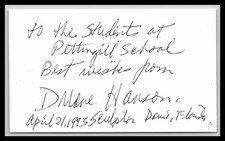 to the students at
Pettingill School
Best wishes from
Duane Hanson,
April 21, 1993 Sculptor Davie, Florida